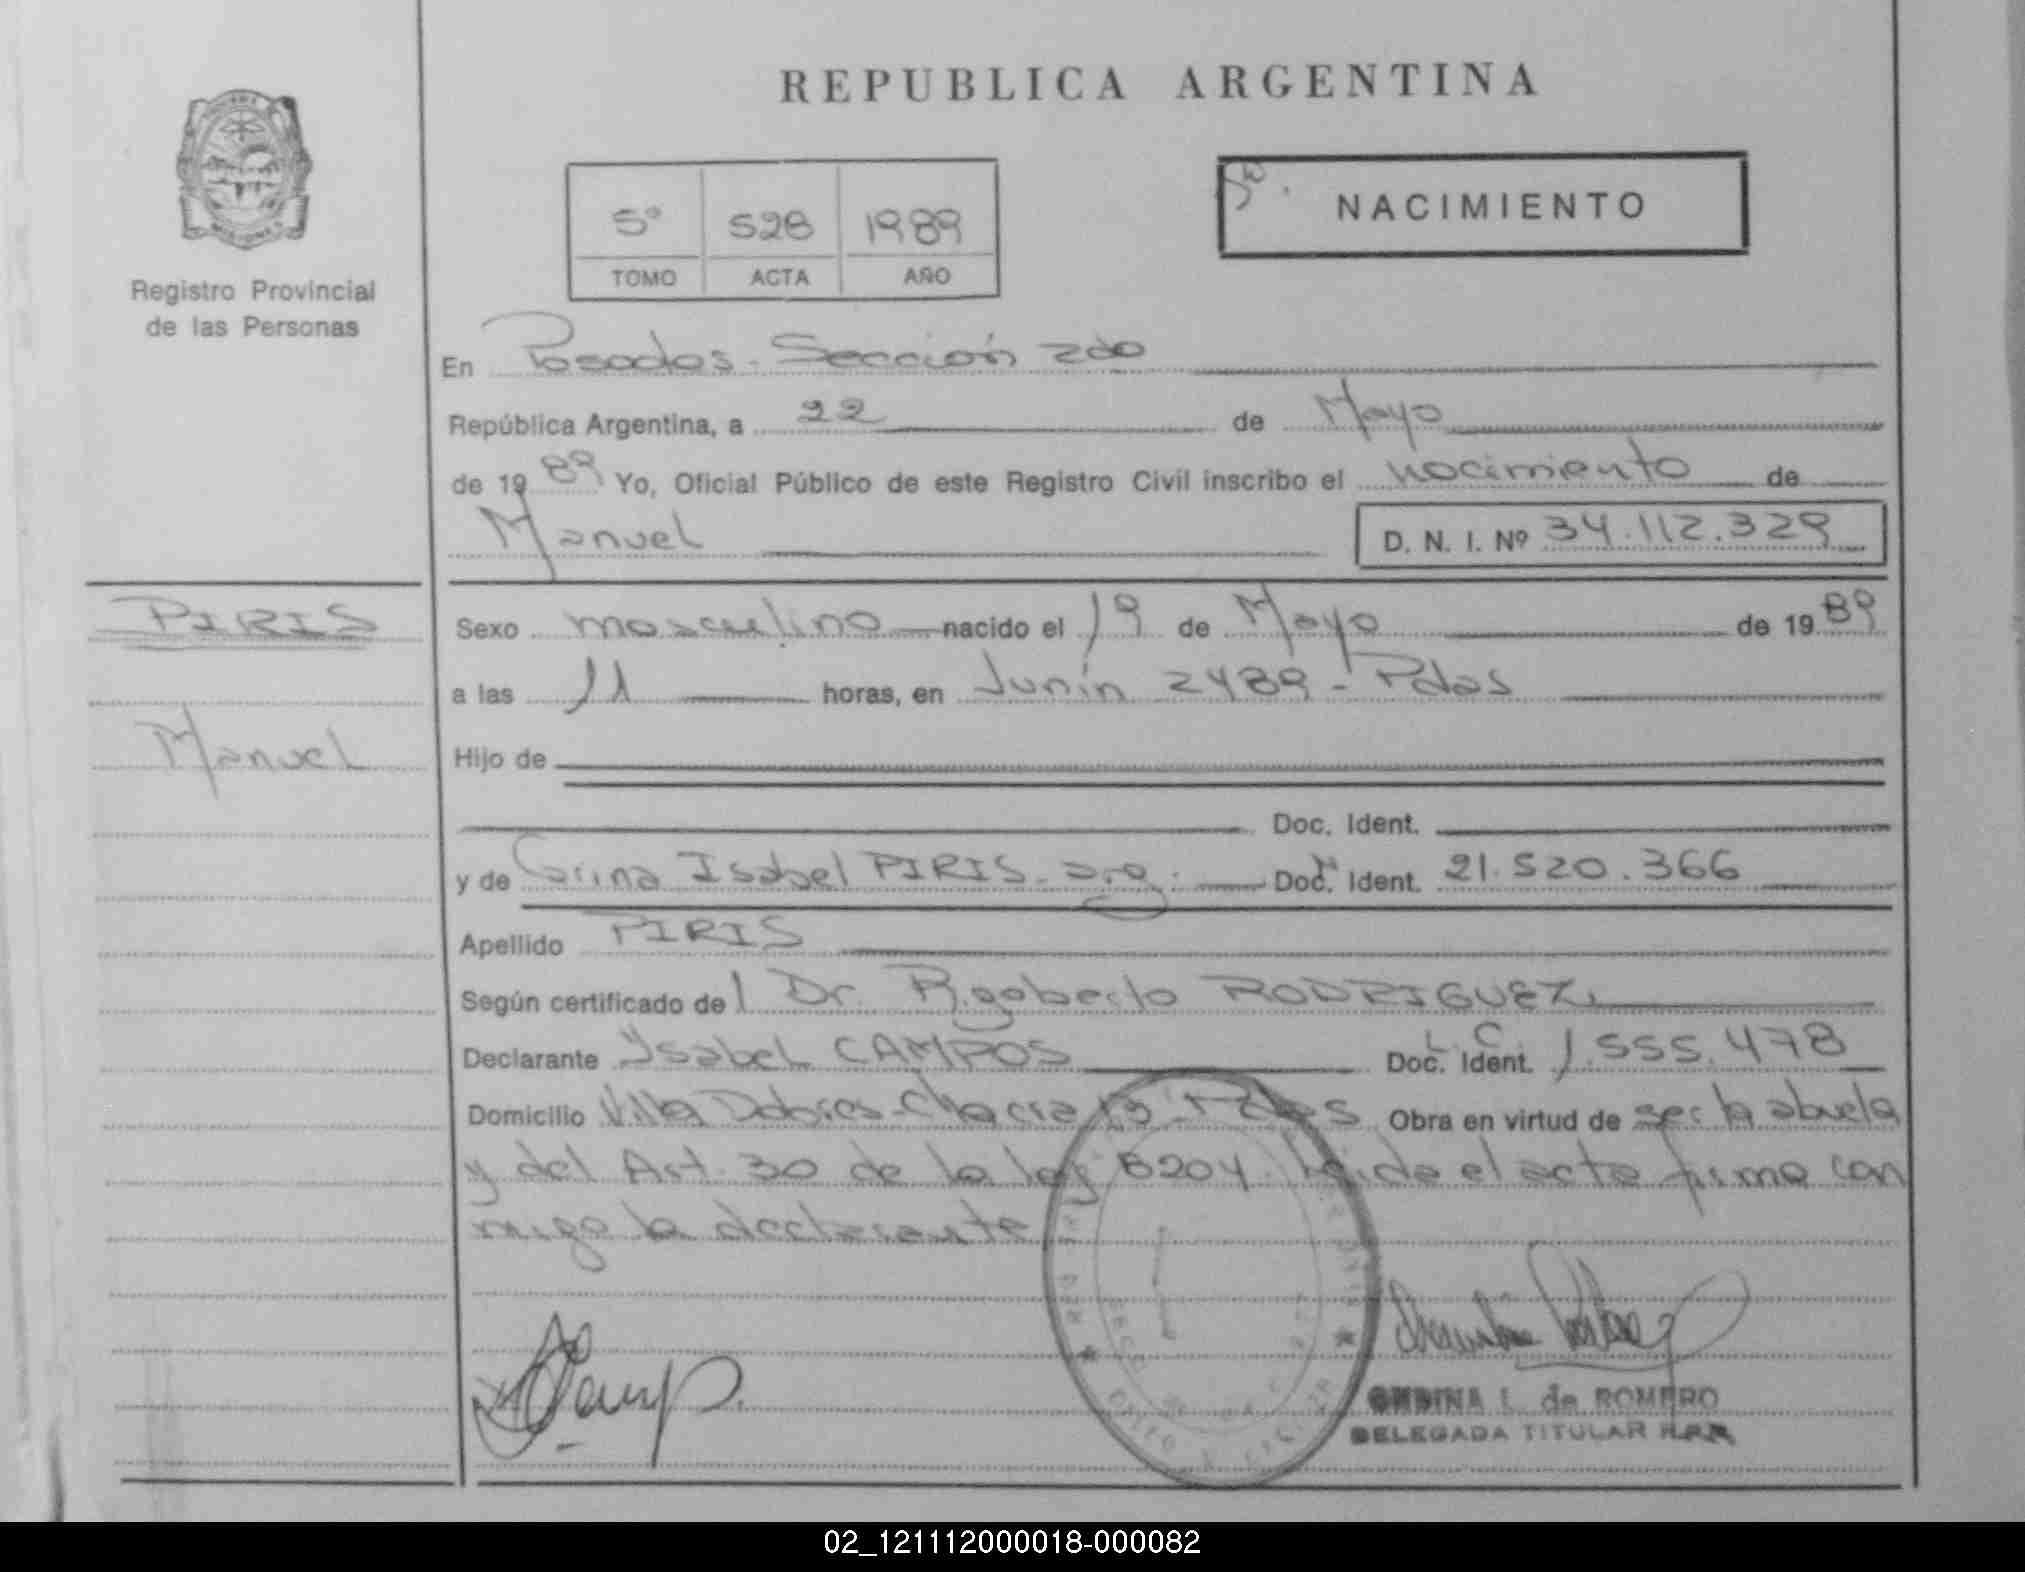 REPUBLICA ARGENTINA
MISIONES
Registro Provincial
de las Personas
5º 528 1989
TOMO ACTA AÑO
NACIMIENTO
En Posadas - Sección 2da
República Argentina, a 22 de Mayo
de 1989 Yo, Oficial Público de este Registro Civil inscribo el nacimiento de
Manuel D. N. I. Nº 34.112.329
PIRIS
Manuel
Sexo masculino nacido el 19 de Mayo de 1989
a las 11 horas, en Junín 2489 - Pdas
Hijo de
Doc. Ident.
y de Carina Isabel PIRIS - arg. Doc. Ident. 21.520.366
Apellido PIRIS
Según certificado del Dr. Rigoberto RODRIGUEZ
Declarante Ysabel CAMPOS Doc. Ident. L.C. 1.555.478
Domicilio Villa Dolores - Chacra Pdas Obra en virtud de ser la abuela
y del Art. 30 de la ley 8204. Leida el acta firma con
migo la declarante
L. de ROMERO
DELEGADA TITULAR
02_121112000018-000082